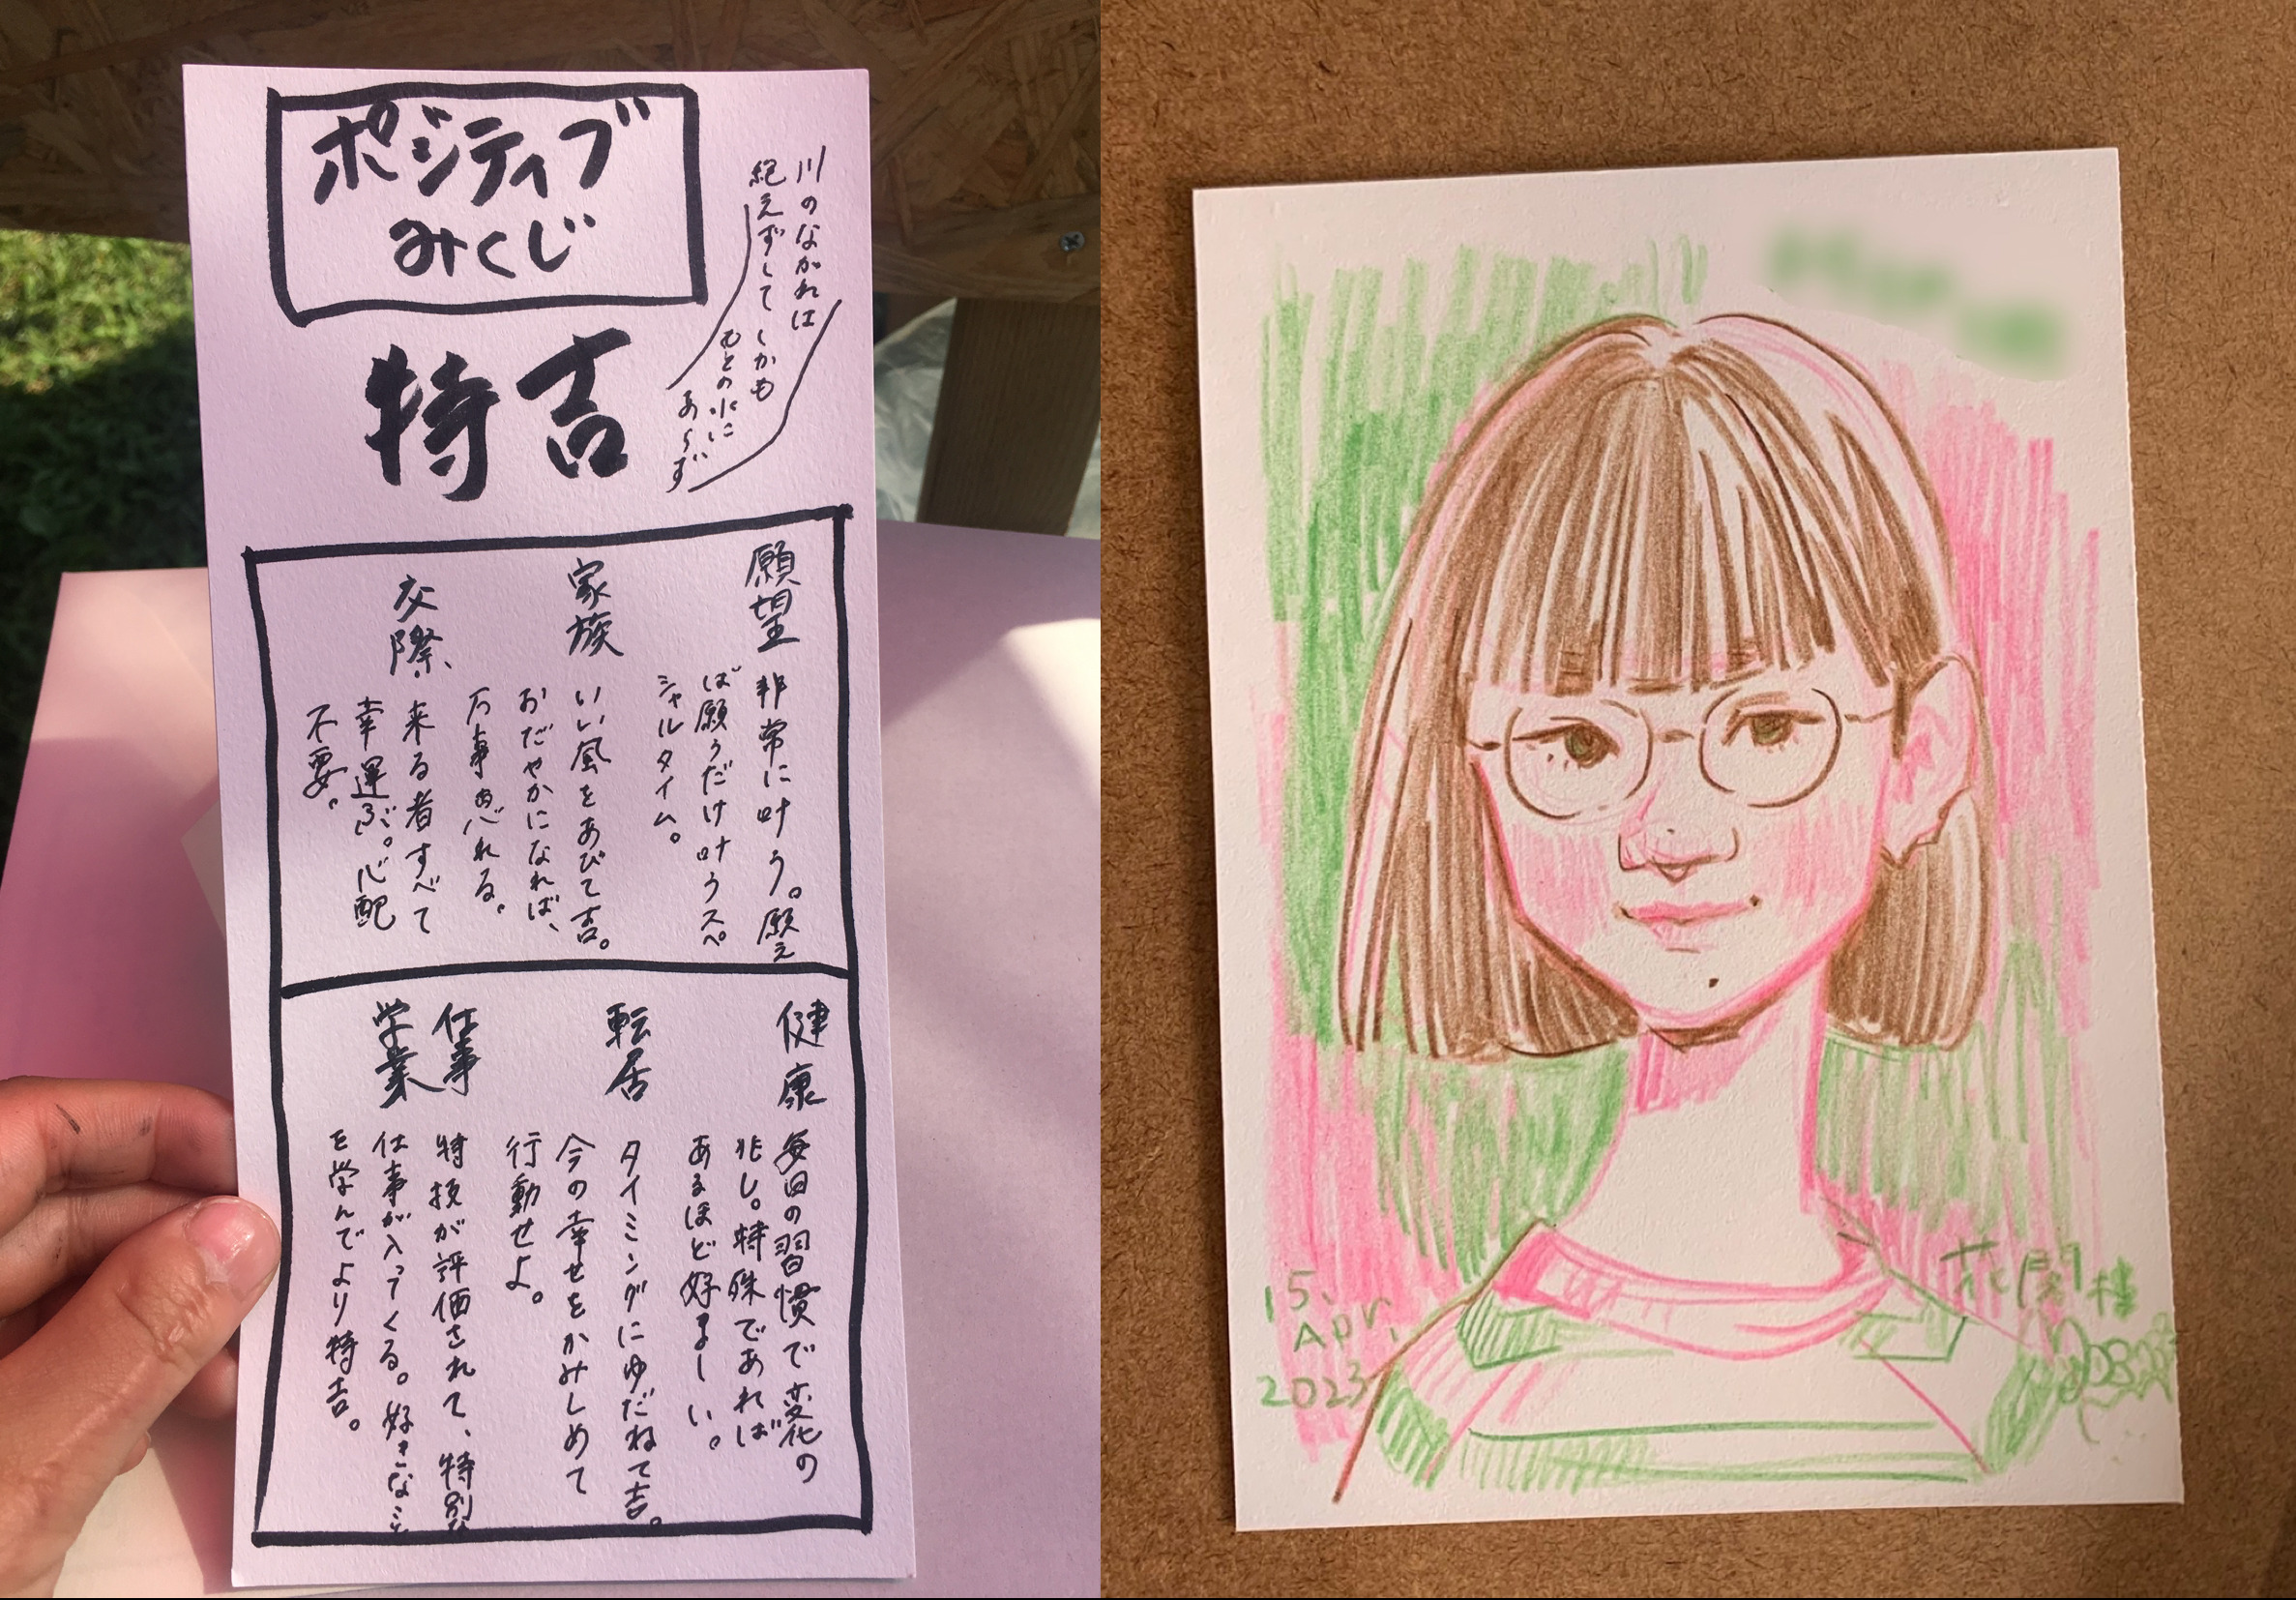 ポジティブ
みくじ
川のながれは
絶えずして しかも
もとの水に
あらず
特吉
願望
非常に叶う。願え
ば願うだけ叶うスペ
シャルタイム。
家族
いい風をあびて吉。
おだやかになれば、
万事忘れる。
交際、
来る者すべて
幸運ぶ。心配
不要。
健康
毎日の習慣で変化の
兆し。特殊であれば
あるほど好ましい。
転居
タイミングにゆだねて吉。
今の幸せをかみしめて
行動せよ。
仕事
学業
特技が評価されて、特別な
仕事が入ってくる。好きなこと
を学んでより特吉。
15.
Apr.
2023